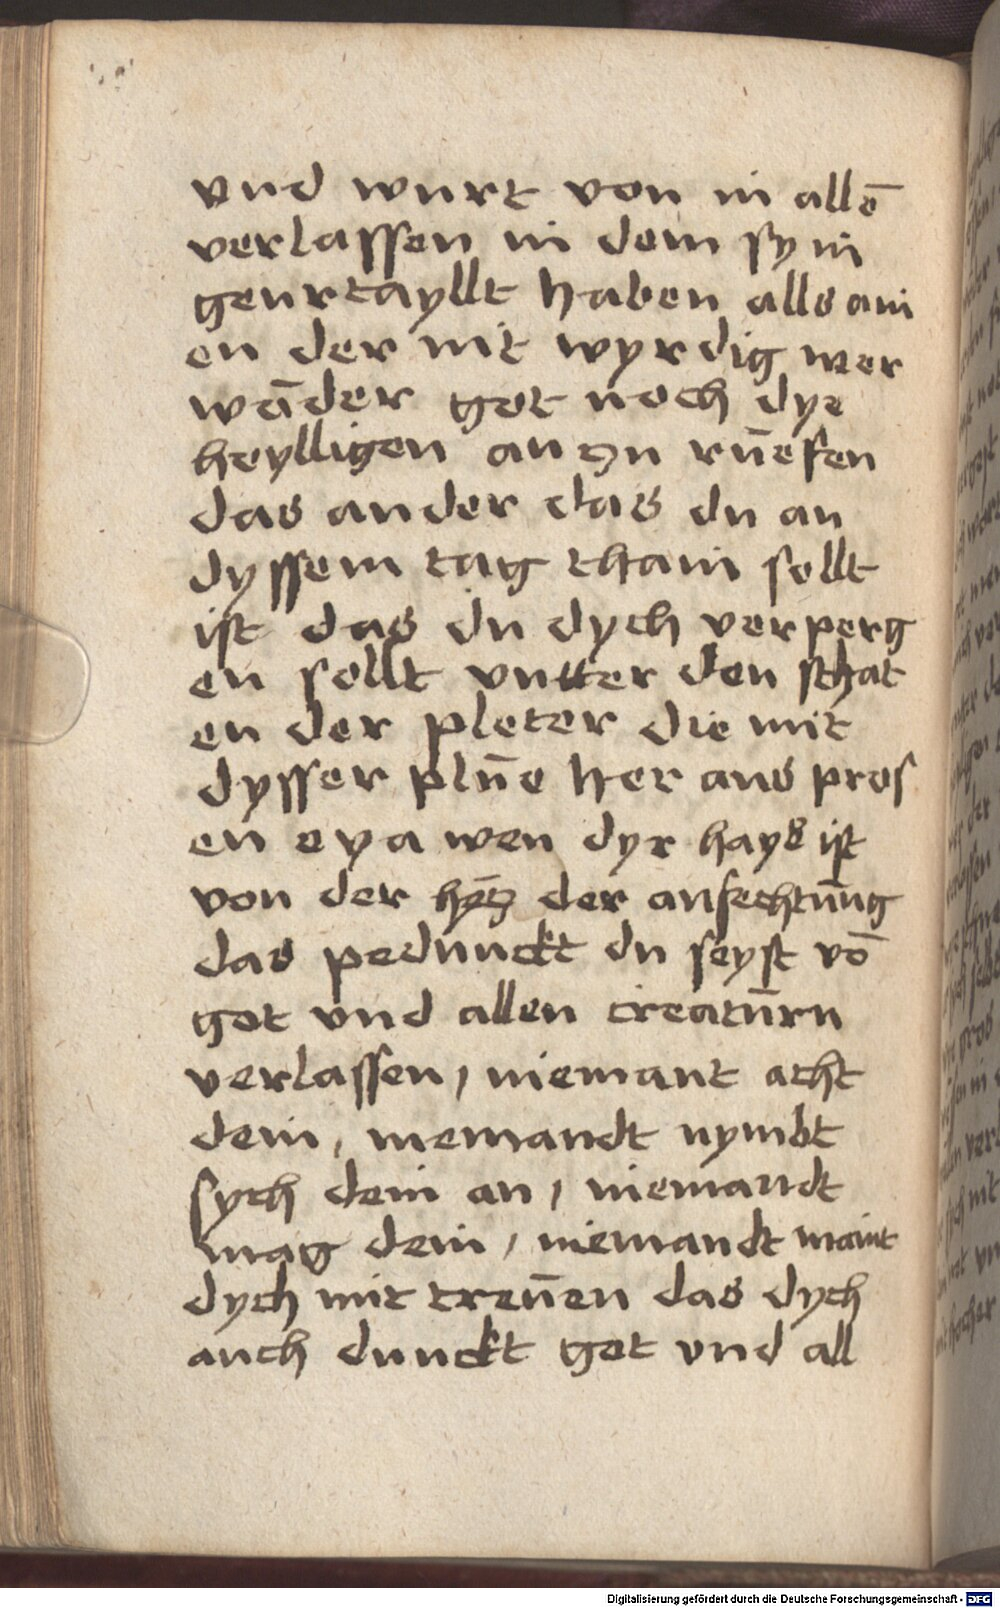 vnd wurt von in allē
verlassen in dem sy in
geurtayllt haben alls ain
en der nit wyrdig wer
wāder got noch dye
heylligen an zu rūefen
das ander das du an
dyssem tag thain sollt
ist das du dych verperg
en sollt vntter den schat
en der pleter die mit
dysser plūe her aus pros
en eya wen dyr hays ist
von der hytz der anfechtūng
das pedunckt du seyst vō
got vnd allen creatūrn
verlassen, niemant acht
dein, niemandt nymbt
sych dein an, niemandt
mag dein, niemandt maint
dych mit treūen das dych
auch dunckt got vnd all
Digitalisierung gefördert durch die Deutsche Forschungsgemeinschaft - DFG